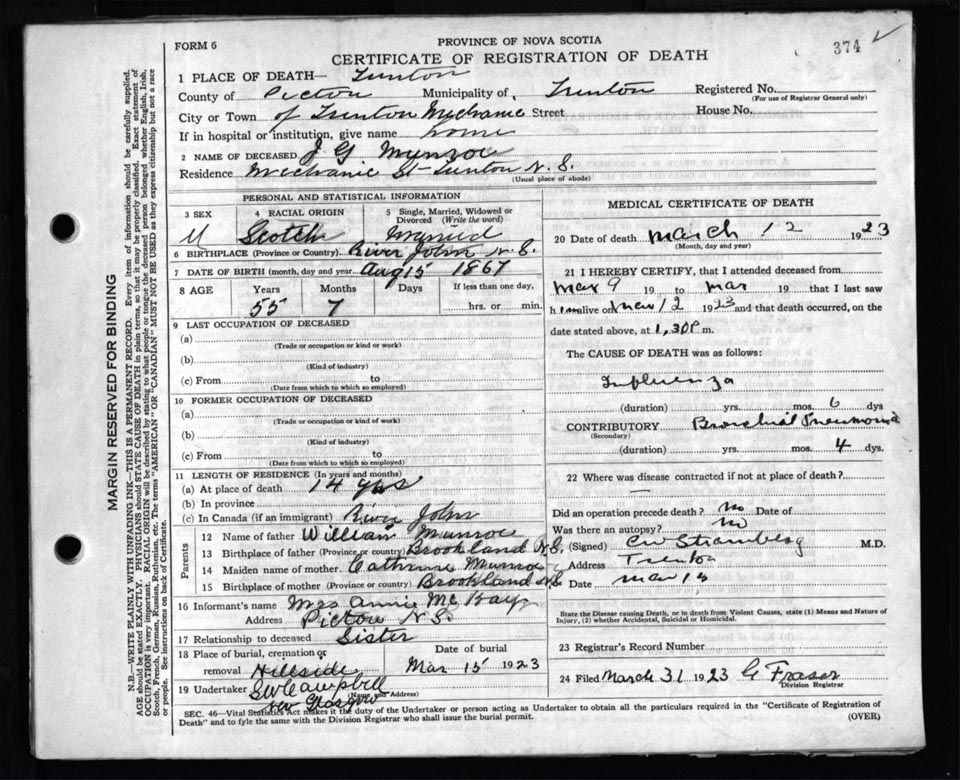 FORM 6
PROVINCE OF NOVA SCOTIA
374
CERTIFICATE OF REGISTRATION OF DEATH
1 PLACE OF DEATH— Trenton
County of Pictou Municipality of Trenton Registered No.
(For use of Registrar General only)
City or Town of Trenton Mechanic Street House No.
If in hospital or institution, give name home
2 NAME OF DECEASED J G Munroe
Residence Mechanic St - Trenton N.S.
(Usual place of abode)
PERSONAL AND STATISTICAL INFORMATION
3 SEX 4 RACIAL ORIGIN 5 Single, Married, Widowed or Divorced (Write the word)
M Scotch Married
6 BIRTHPLACE (Province or Country) River John N.S.
7 DATE OF BIRTH (month, day and year) Aug 15 1867
8 AGE Years Months Days If less than one day,
55 7 hrs. or min.
9 LAST OCCUPATION OF DECEASED
(a)
(Trade or occupation or kind or work)
(b)
(Kind of industry)
(c) From to
(Date from which to which so employed)
10 FORMER OCCUPATION OF DECEASED
(a)
(Trade or occupation or kind of work)
(b)
(Kind of industry)
(c) From to
(Date from which to which so employed)
11 LENGTH OF RESIDENCE (In years and months)
(a) At place of death 14 yrs
(b) In province
(c) In Canada (if an immigrant) River John
Parents
12 Name of father William Munroe
13 Birthplace of father (Province or country) Brookland N.S.
14 Maiden name of mother. Cathrine Munroe
15 Birthplace of mother (Province or country) Brookland N.S
16 Informant's name Mrs Annie McKay
Address Pictou N.S.
17 Relationship to deceased Sister
18 Place of burial, cremation or removal Hillside
Date of burial Mar 15 1923
19 Undertaker S W Campbell
(Name and Address)
New Glasgow
MEDICAL CERTIFICATE OF DEATH
20 Date of death March 12 1923
(Month, day and year)
21 I HEREBY CERTIFY, that I attended deceased from
Mar 9 19 to Mar 19 that I last saw
him alive on Mar 12 1923 and that death occurred, on the
date stated above, at 1.30 P m.
The CAUSE OF DEATH was as follows:
Influenza
(duration) yrs. mos. 6 dys
CONTRIBUTORY Bronchial Pneumonia
(Secondary)
(duration) yrs. mos. 4 dys.
22 Where was disease contracted if not at place of death?
Did an operation precede death? No Date of
Was there an autopsy? No
(Signed) M.D.
Address Trenton
Date Mar 13
State the Disease causing Death, or in death from Violent Causes, state (1) Means and Nature of
Injury, (2) whether Accidental, Suicidal or Homicidal.
23 Registrar's Record Number
24 Filed March 31 1923 G Fraser
Division Registrar
SEC. 46—Vital Statistics Act makes it the duty of the Undertaker or person acting as Undertaker to obtain all the particulars required in the "Certificate of Registration of
Death" and to fyle the same with the Division Registrar who shall issue the burial permit.
(OVER)
MARGIN RESERVED FOR BINDING
N.B.—WRITE PLAINLY WITH UNFADING INK—THIS IS A PERMANENT RECORD. Every item of information should be carefully supplied.
AGE should be stated EXACTLY. PHYSICIANS should STATE CAUSE OF DEATH in plain terms, so that it may be properly classified. Exact statement of
OCCUPATION is very important. RACIAL ORIGIN will be described by stating to what people or tongue the deceased person belonged whether English, Irish,
Scotch, French, German, Russian, Ruthenian, etc. The terms "AMERICAN" OR "CANADIAN" MUST NOT BE USED as they express citizenship but not a race
or people. See instructions on back of Certificate.